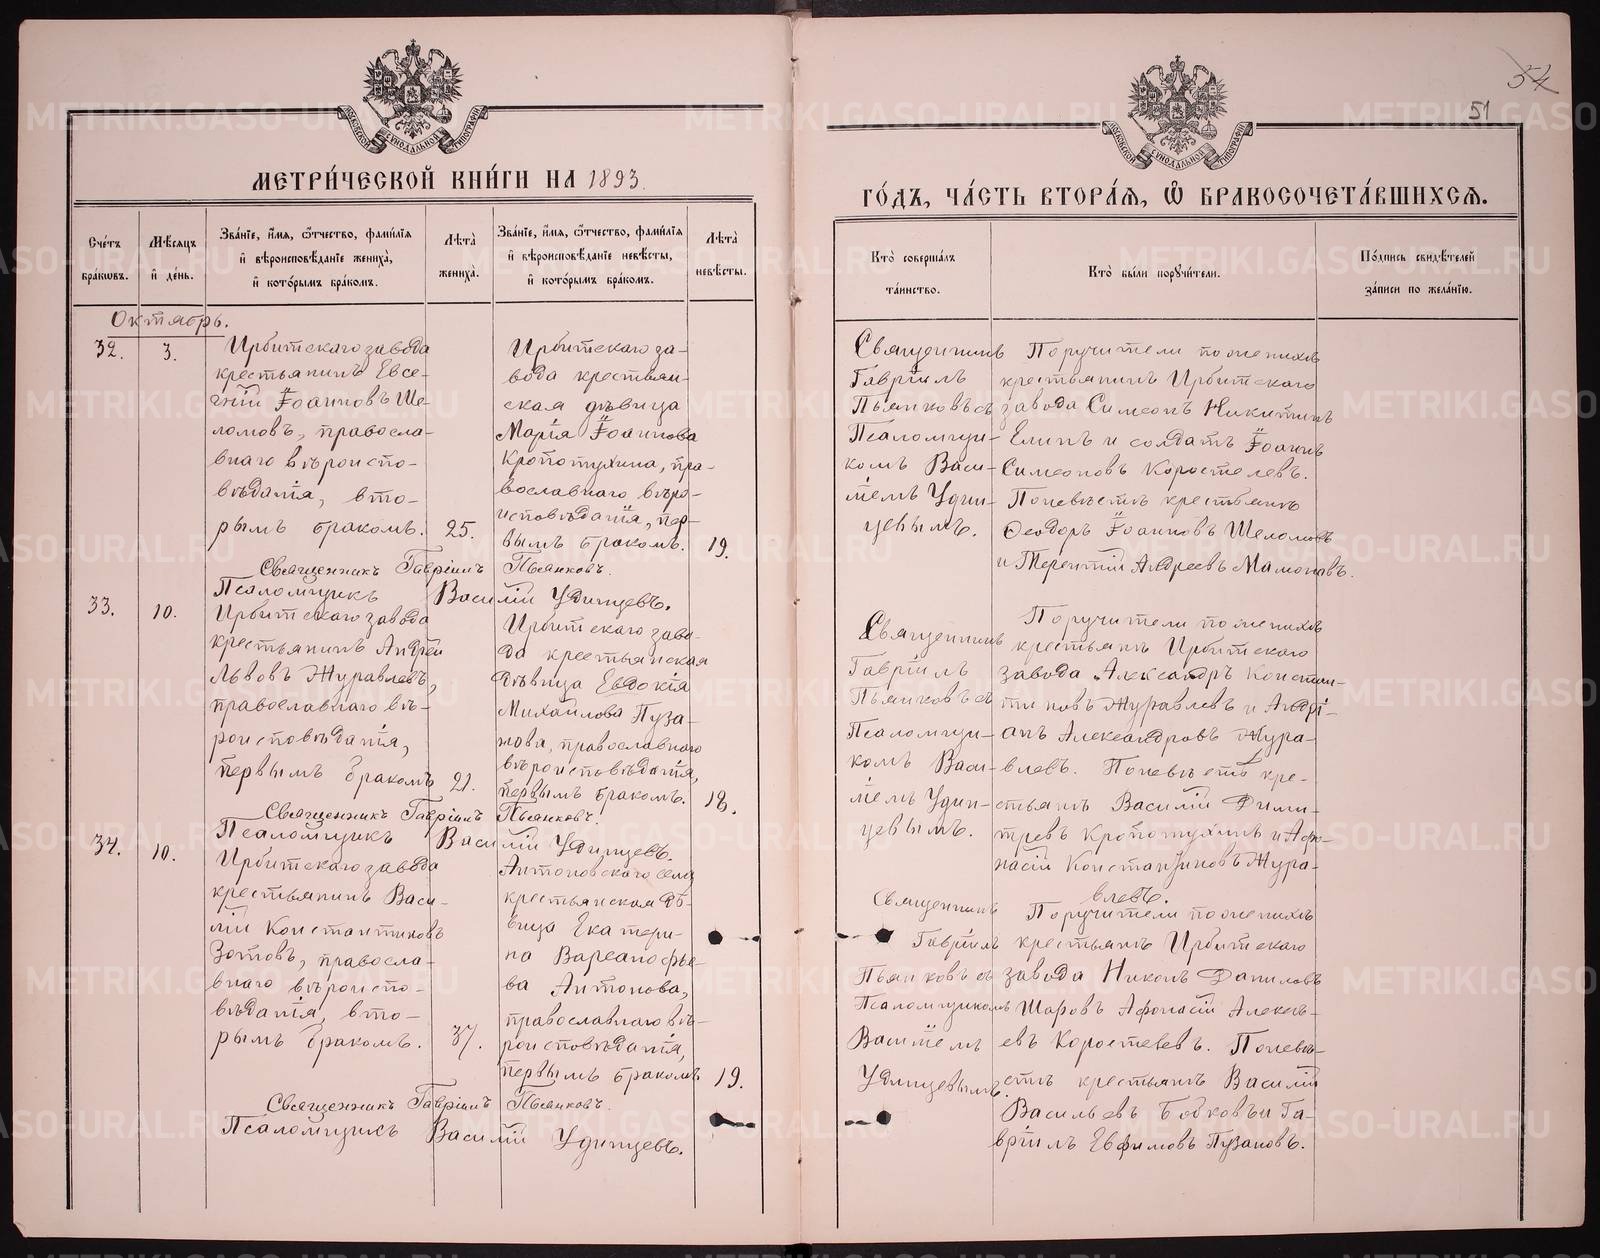 МЕТРИ́ЧЕСКОЙ КНИ́ГИ НА 1893.
Сче́тъ бра́кωвъ.
Мѣ́сяцъ и҆ де́нь.
Зва́нїе, и҆́мя, ѻ҆́тчество, фами́лїя
и҆ вѣроисповѣ́данїе жениха̀,
и҆ кото́рымъ бра́комъ.
Лѣ́та̀
жениха̀.
Зва́нїе, и҆́мя, ѻ҆́тчество, фами́лїя
и҆ вѣроисповѣ́данїе невѣ́сты,
и҆ кото́рымъ бра́комъ.
Лѣ́та̀
невѣ́сты.
Октябрь.
32.
3.
Ирбитскаго завода
крестьянинъ Евсе-
гній Іоанновъ Ше-
ломовъ, правосла-
внаго вѣроиспо-
вѣданія, вто-
рымъ бракомъ.
25.
Ирбитскаго за-
вода крестьян-
ская дѣвица
Марія Іоаннова
Кропотухина, пра-
вославнаго вѣро-
исповѣданія, пер-
вымъ бракомъ.
19.
Священникъ Гавріилъ Пьянковъ.
Псаломщикъ Василій Удинцевъ.
33.
10.
Ирбитскаго завода
крестьянинъ Андрей
Львовъ Журавлевъ,
православнаго вѣ-
роисповѣданія,
первымъ бракомъ
21.
Ирбитскаго заво-
да крестьянская
дѣвица Евдокія
Михайлова Пуза-
нова, православнаго
вѣроисповѣданія,
первымъ бракомъ.
18.
Священникъ Гавріилъ Пьянковъ.
Псаломщикъ Василій Удинцевъ.
34.
10.
Ирбитскаго завода
крестьянинъ Васи-
лій Константиновъ
Зотовъ, правосла-
внаго вѣроиспо-
вѣданія, вто-
рымъ бракомъ.
37.
Антоновскаго села
крестьянская дѣ-
вица Екатери-
на Варсанофье-
ва Антонова,
православнаго вѣ-
роисповѣданія,
первымъ бракомъ
19.
Священникъ Гавріилъ Пьянковъ.
Псаломщикъ Василій Удинцевъ.
54
51
ГО́ДЪ, ЧА́СТЬ ВТОРА́Я, Ѽ БРАКОСОЧЕТА́ВШИХСЯ.
Кто̀ соверша́лъ
та́инство.
Кто̀ бы́ли порꙋчи́тели.
По́дпись свидѣ́телей
за́писи по жела́нїю.
Священникъ
Гавріилъ
Пьянковъ съ
Псаломщи-
комъ Васи-
ліемъ Удин-
цевымъ.
Поручители по женихѣ
крестьянинъ Ирбитскаго
завода Симеонъ Никитинъ
Елинъ и солдатъ Іоаннъ
Симеоновъ Коростелевъ.
По невѣстѣ крестьянъ
Ѳеодоръ Іоанновъ Шеломовъ
и Терентій Андреевъ Мамоновъ.
Священникъ
Гавріилъ
Пьянковъ съ
Псаломщи-
комъ Васи-
ліемъ Удин-
цевымъ.
Поручители по женихѣ
крестьянъ Ирбитскаго
завода Александръ Констан-
тиновъ Журавлевъ и Андрі-
анъ Александровъ Жура-
влевъ. По невѣстѣ кре-
стьянъ Василій Дими-
тревъ Кропотухинъ и Афо-
насій Константиновъ Жура-
влевъ.
Священникъ
Гавріилъ
Пьянковъ съ
Псаломщикомъ
Василіемъ
Удинцевымъ.
Поручители по женихѣ
крестьянъ Ирбитскаго
завода Никонъ Даниловъ
Шаровъ Афонасій Алексѣ-
евъ Коростелевъ. По невѣ-
стѣ крестьянъ Василій
Васильевъ Бобковъ и Га-
вріилъ Евфимовъ Пузановъ.